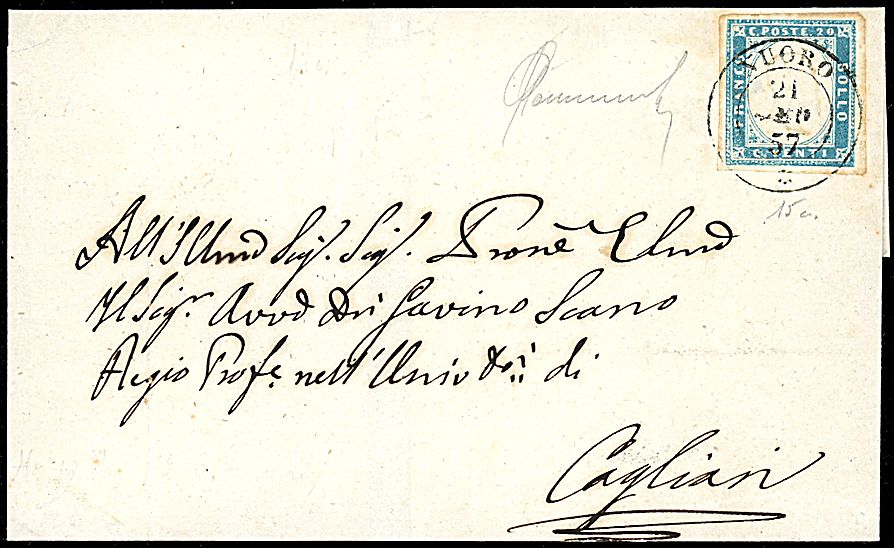 C. POSTE. 20
FRANCO
BOLLO
CENTI
NUORO
21
57
15c.
All'Illmo Sig. Sig. Prone Colmo
Il Sigr Avvo Dn Gavino Scano
Regio Profe nell'Univ di
Cagliari